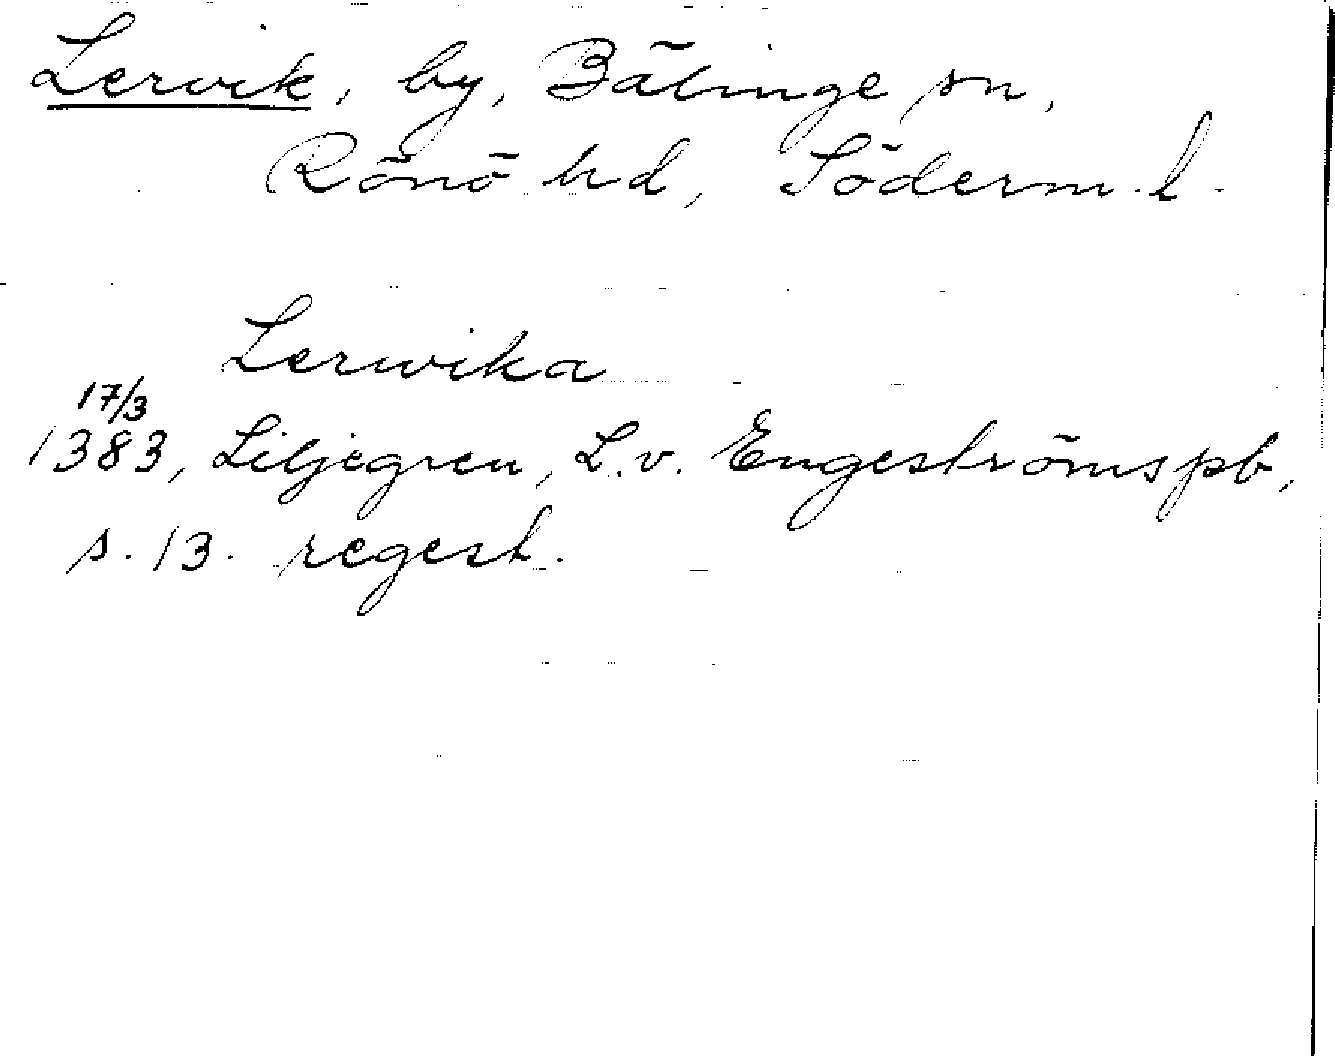 Lervik, by, Bälinge sn,
Rönö hd, Söderm. l.
Lerwika
17/3
1383, Liljegren, L. v. Engeströms pb,
s. 13. regest.